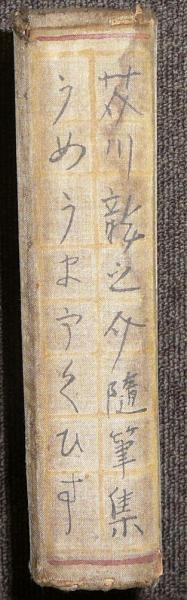 芥川龍之介隨筆集
うめうまうぐひす